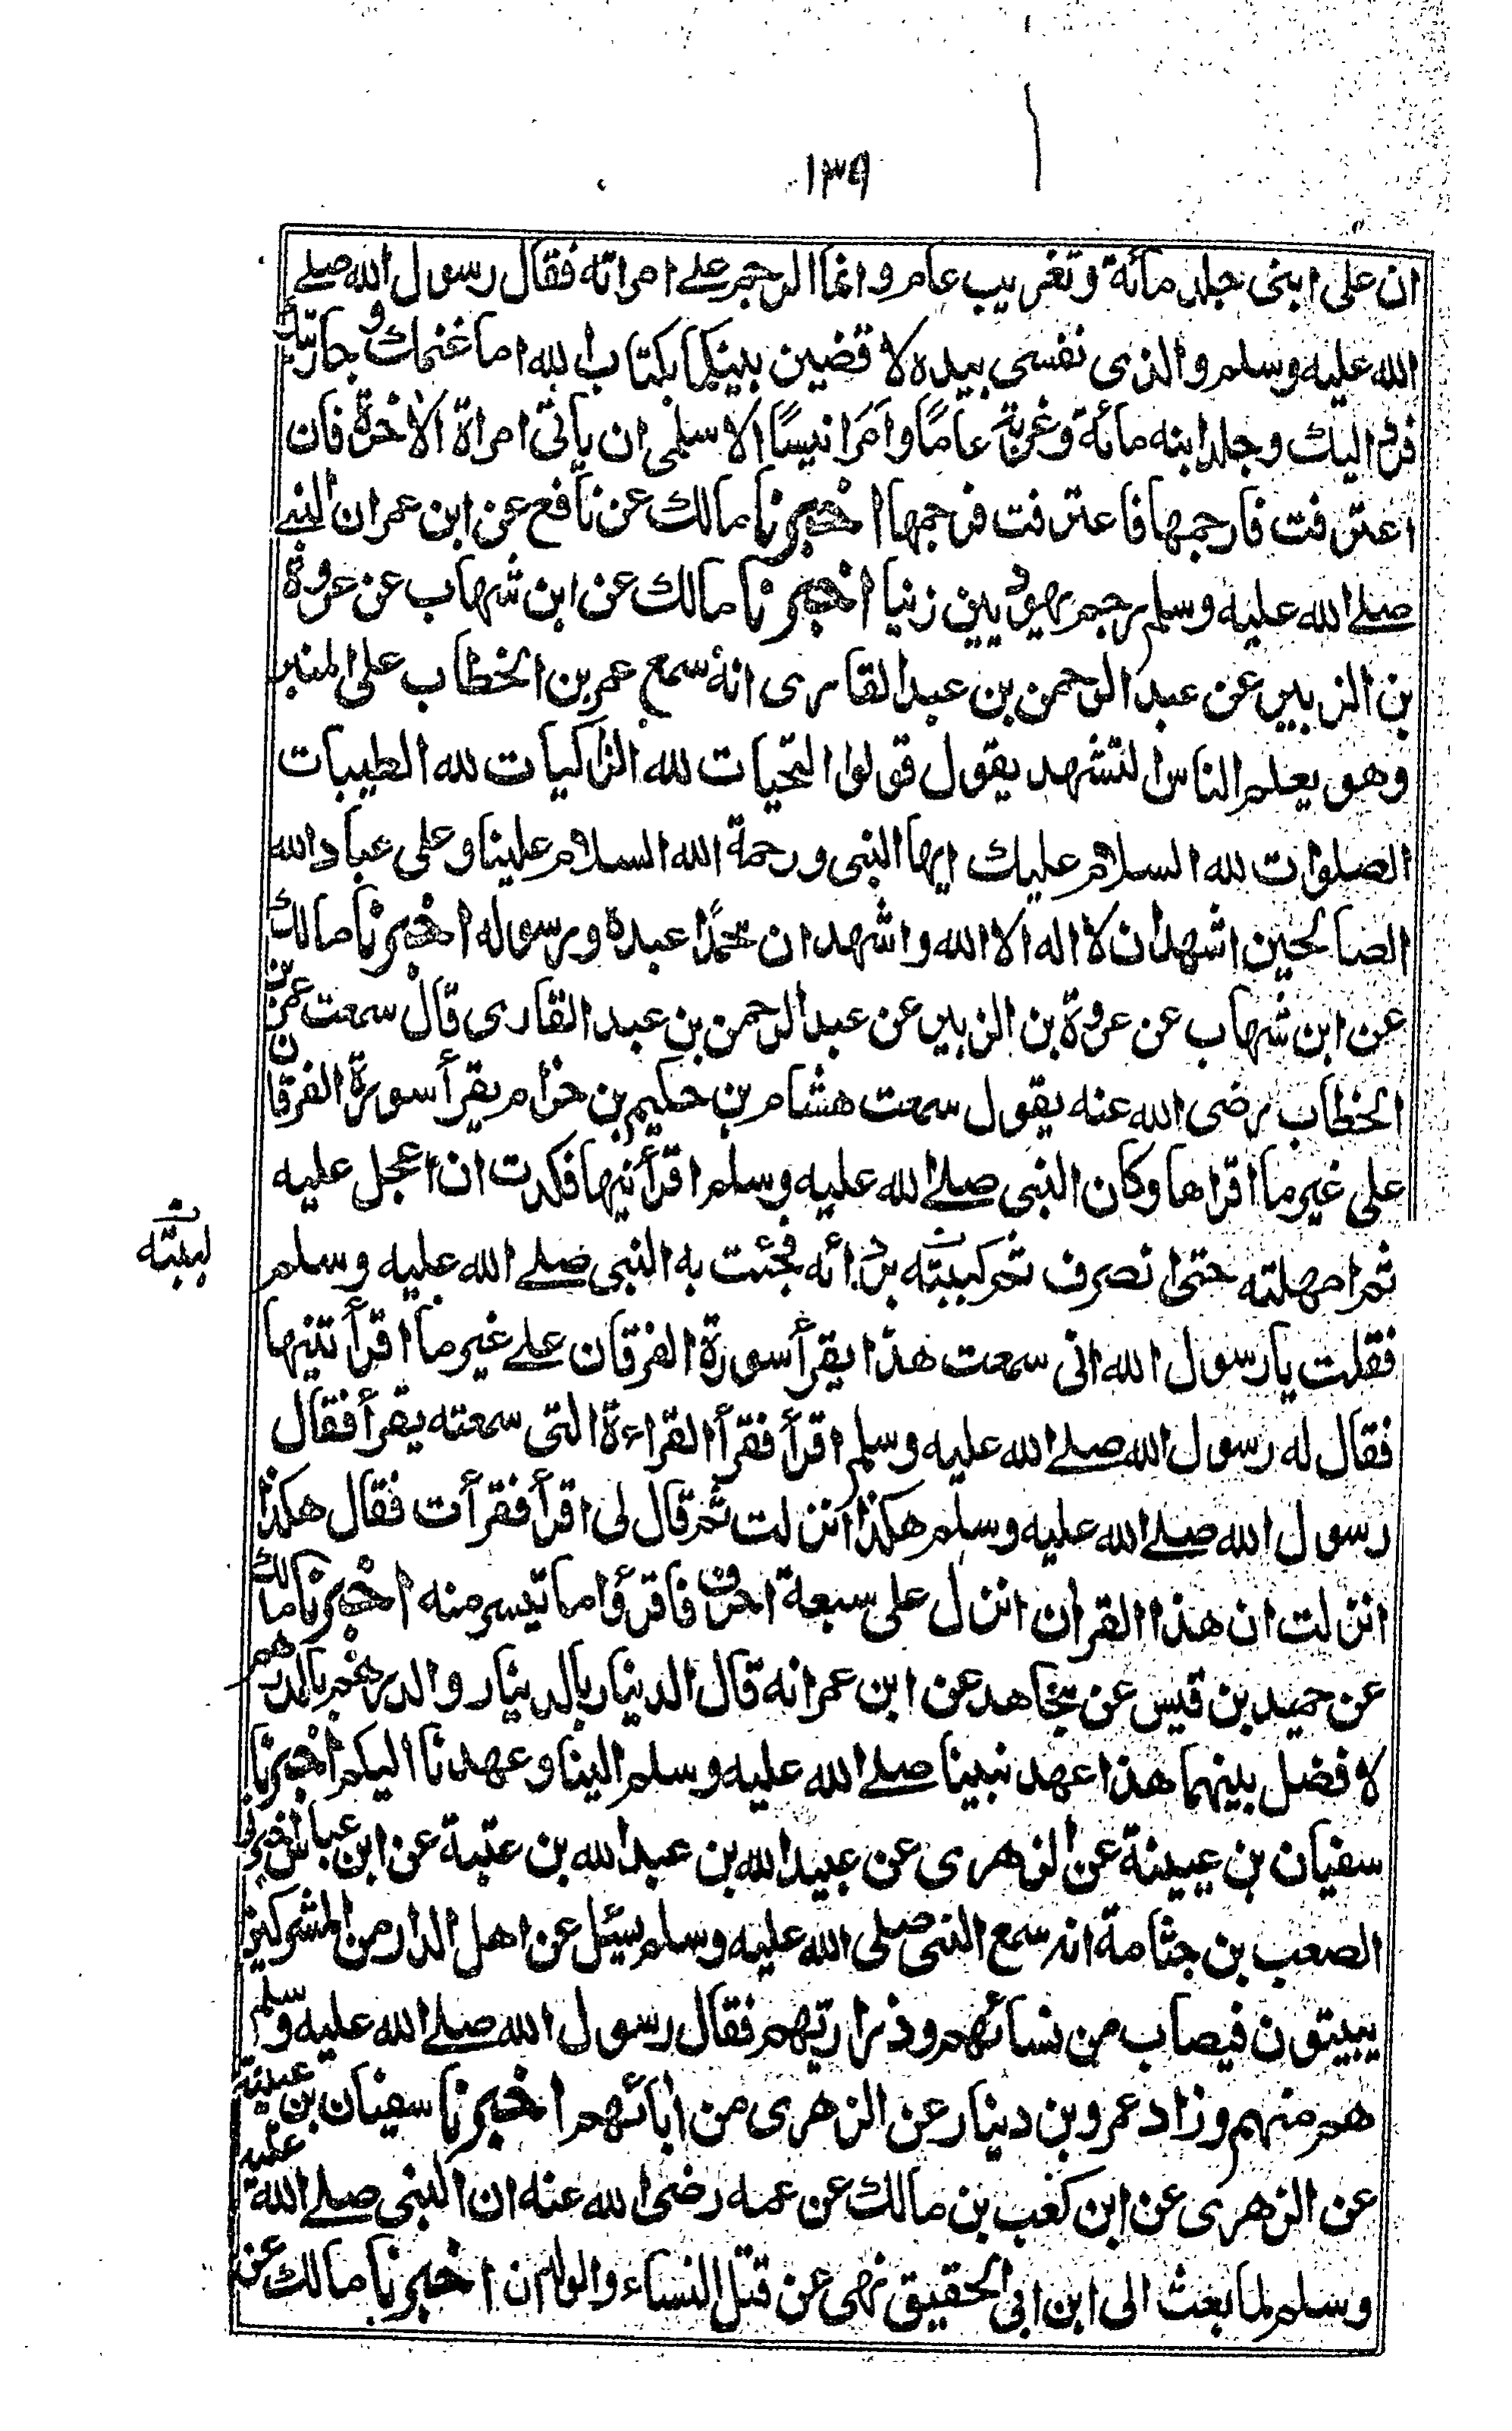 ١٣٩
ان على ابنى جلد مائة وتغريب عام وانما الرجم على امراته فقال رسول الله صلى
الله عليه وسلم والذى نفسى بيده لاقضين بينكما بكتاب الله اما غنمك وجاريتك
فرد اليك وجلد ابنه مائة وغربه عاما وامر انيسا الاسلمى ان ياتى امراة الاخر فان
اعترفت فارجمها فاعترفت فرجمها اخبرنا مالك عن نافع عن ابن عمر ان النبى
صلى الله عليه وسلم رجم يهوديين زنيا اخبرنا مالك عن ابن شهاب عن عروة
بن الزبير عن عبد الرحمن بن عبد القارى انه سمع عمر بن الخطاب على المنبر
وهو يعلم الناس التشهد يقول قولوا التحيات لله الزاكيات لله الطيبات
الصلوات لله السلام عليك ايها النبى ورحمة الله السلام علينا وعلى عباد الله
الصالحين اشهد ان لا اله الا الله واشهد ان محمدا عبده ورسوله اخبرنا مالك
عن ابن شهاب عن عروة بن الزبير عن عبد الرحمن بن عبد القارى قال سمعت عمر بن
الخطاب رضى الله عنه يقول سمعت هشام بن حكيم بن حزام يقرأ سورة الفرقان
على غير ما اقراها وكان النبى صلى الله عليه وسلم اقرأنيها فكدت ان اعجل عليه
ثم امهلته حتى انصرف ثم لببته بردائه فجئت به النبى صلى الله عليه وسلم
لببته
فقلت يا رسول الله انى سمعت هذا يقرأ سورة الفرقان على غير ما اقرأتنيها
فقال له رسول الله صلى الله عليه وسلم اقرأ فقرأ القراءة التى سمعته يقرأ فقال
رسول الله صلى الله عليه وسلم هكذا انزلت ثم قال لى اقرأ فقرأت فقال هكذا
انزلت ان هذا القران انزل على سبعة احرف فاقرؤا ما تيسر منه اخبرنا مالك
عن حميد بن قيس عن مجاهد عن ابن عمر انه قال الدينار بالدينار والدرهم بالدرهم
لا فضل بينهما هذا عهد نبينا صلى الله عليه وسلم الينا وعهدنا اليكم اخبرنا
سفيان بن عيينة عن الزهرى عن عبيد الله بن عبد الله بن عتبة عن ابن عباس اخبرنى
الصعب بن جثامة انه سمع النبى صلى الله عليه وسلم سيئل عن اهل الدار من المشركين
يبيتون فيصاب من نسائهم وذراريهم فقال رسول الله صلى الله عليه وسلم
هم منهم وزاد عمرو بن دينار عن الزهرى من ابائهم اخبرنا سفيان بن عيينة
عن الزهرى عن ابن كعب بن مالك عن عمه رضى الله عنه ان النبى صلى الله عليه
وسلم لما بعث الى ابن ابى الحقيق نهى عن قتل النساء والولدان اخبرنا مالك عن